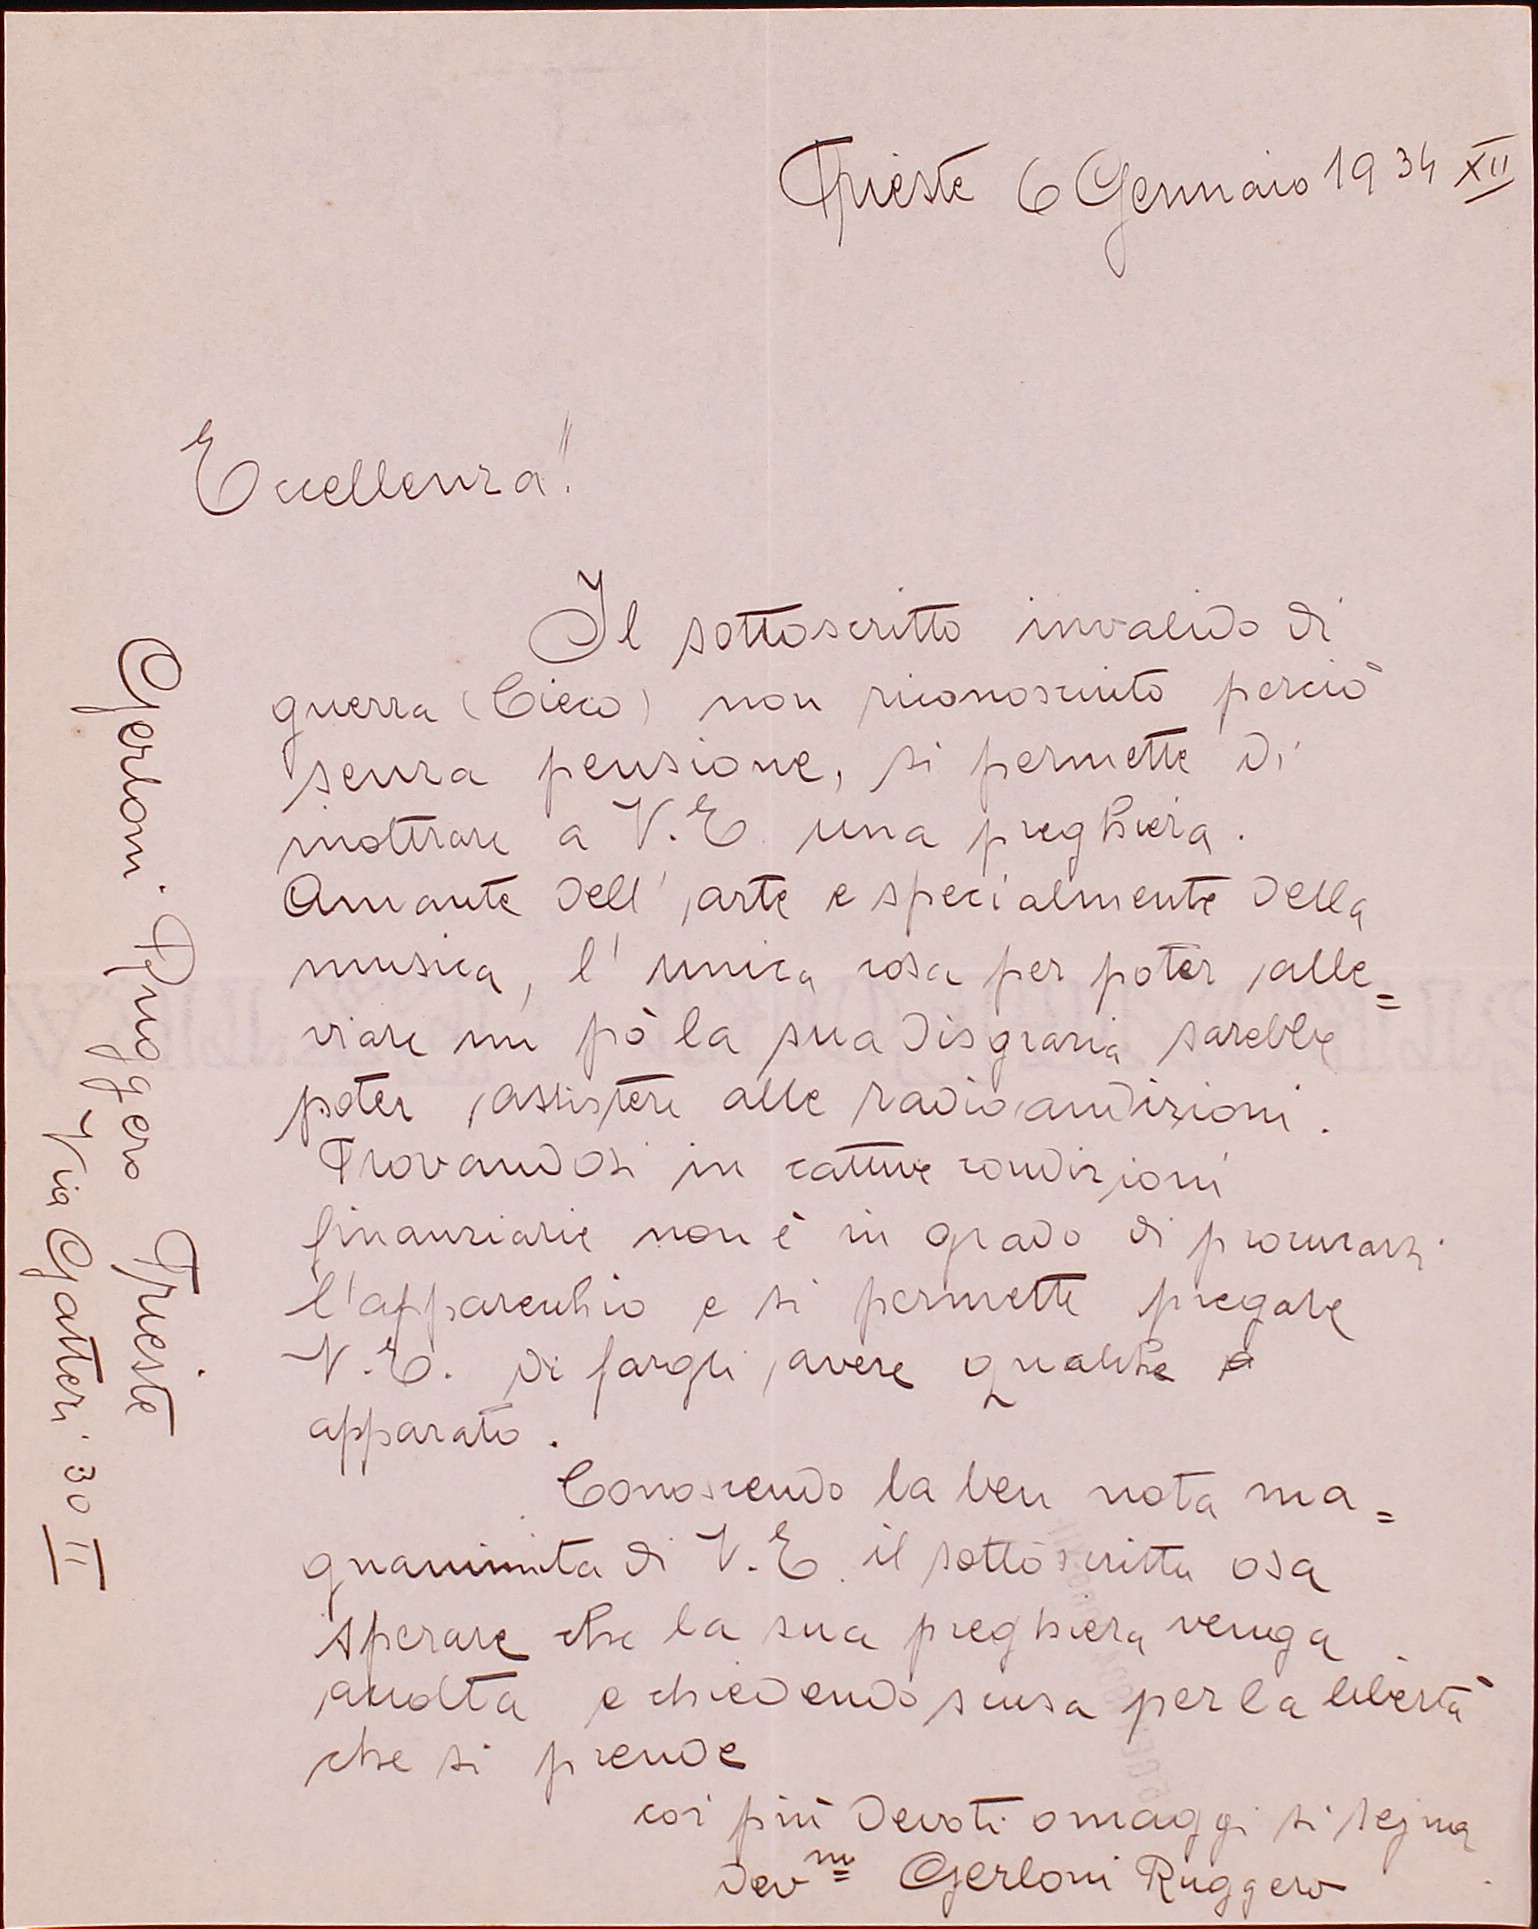 Trieste 6 Gennaio 1934 XII
Eccellenza!!
Il sottoscritto invalido di
guerra (Cieco) non riconosciuto perciò
senza pensione, si permette di
inoltrare a V.E. una preghiera.
Amante dell'arte e specialmente della
musica, l'unica cosa per poter alle=
viare un pò la sua disgrazia sarebbe
poter assistere alle radioaudizioni.
Trovandosi in cattive condizioni
finanziarie non è in grado di procurarsi
l'apparecchio e si permette pregare
V.E. di fargli avere qualche
apparato.
Conoscendo la ben nota ma=
gnanimita di V.E. il sottoscritto osa
sperare che la sua preghiera venga
accolta e chiedendo scusa per la libertà
che si prende
coi più devoti omaggi si segna
Dev.mo Gerloni Ruggero
Gerloni Ruggero Trieste
Via Gatteri 30 II